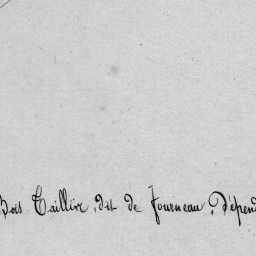 Bois Taillis, dit de Fourneau, Dépend